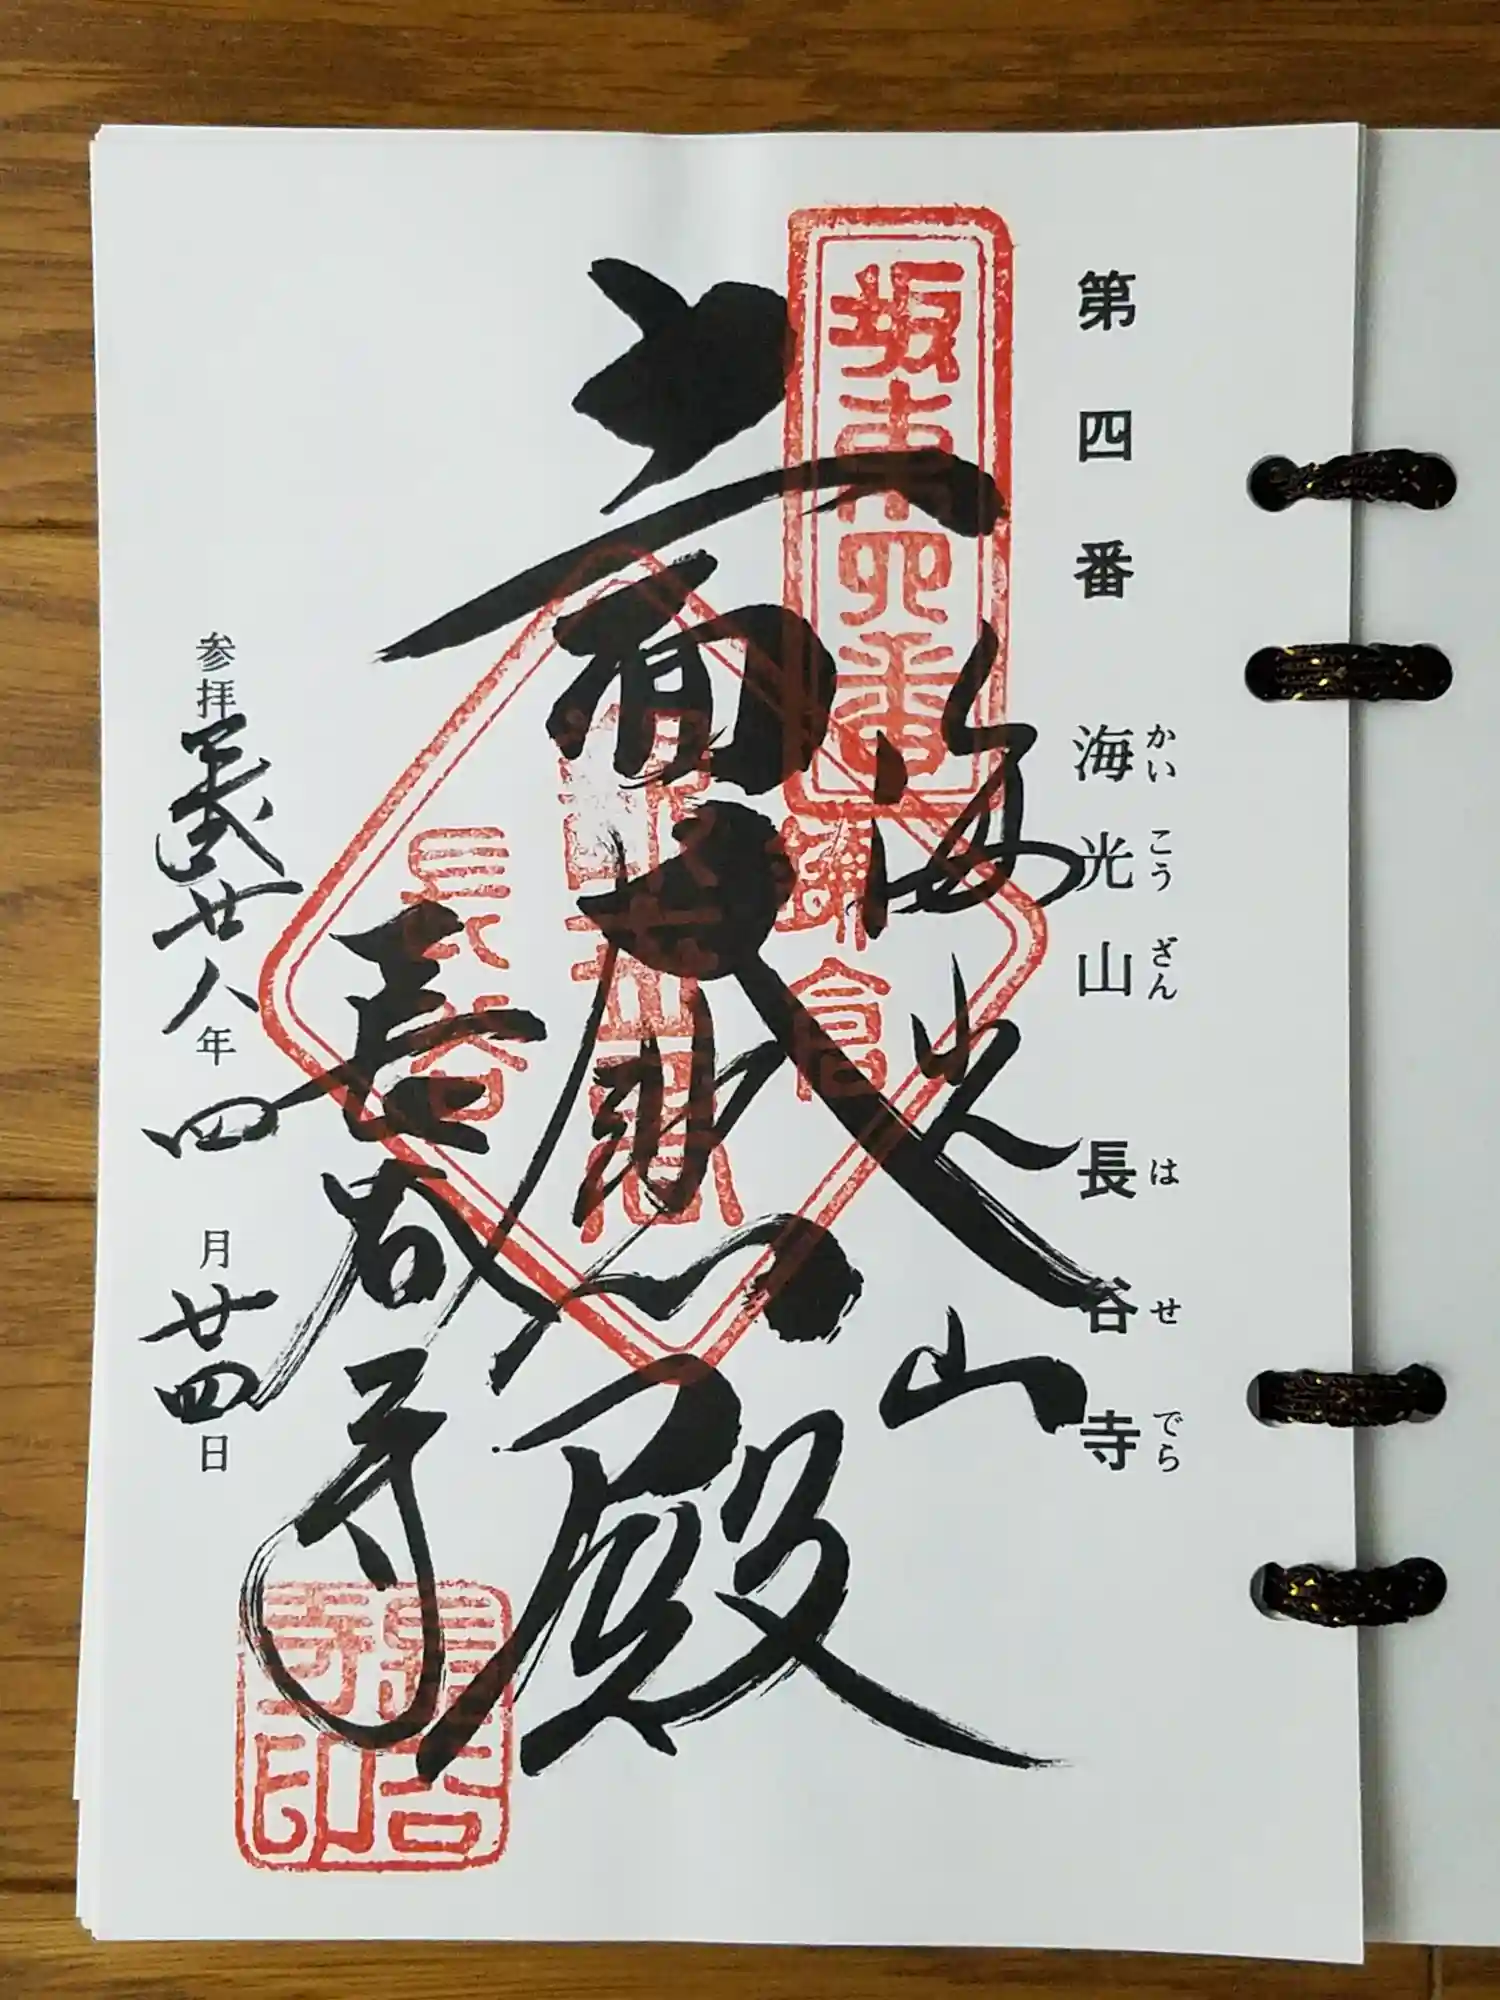 第四番 海光山 長谷寺
かいこうざん はせでら
坂東四番
海光山
鎌倉
十一面大悲殿
長谷
長谷寺
長谷寺印
参拝 平成廿八年四月廿四日